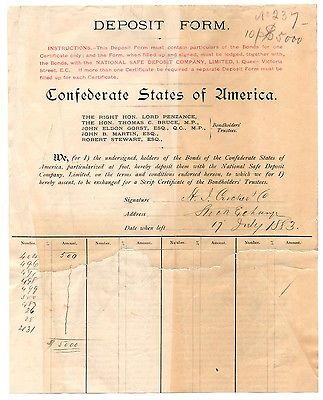 DEPOSIT FORM.
No 237
10/ $5000
INSTRUCTIONS.—This Deposit Form must contain particulars of the Bonds for one
Certificate only; and the Form, when filled up and signed, must be lodged, together with
the Bonds, with the NATIONAL SAFE DEPOSIT COMPANY, LIMITED, 1, Queen Victoria
Street, E.C. If more than one Certificate be required a separate Deposit Form must be
filled up for each Certificate.
Confederate States of America.
THE RIGHT HON. LORD PENZANCE,
THE HON. THOMAS C. BRUCE, M.P.,
JOHN ELDON GORST, ESQ., Q.C., M.P.,
JOHN B. MARTIN, ESQ.,
ROBERT STEWART, ESQ.,
Bondholders'
Trustees.
We, (or I) the undersigned, holders of the Bonds of the Confederate States of
America, particularized at foot, hereby deposit them with the National Safe Deposit
Company, Limited, on the terms and conditions endorsed hereon, to which we (or I)
hereby assent, to be exchanged for a Scrip Certificate of the Bondholders' Trustees.
Signature
Address Stock Exchange
Date when left 17 July 1883.
Number. $ Amount. Number. $ Amount. Number. $ Amount. Number. $ Amount.
500
496
498
499
500
26
28
431
$ 5000